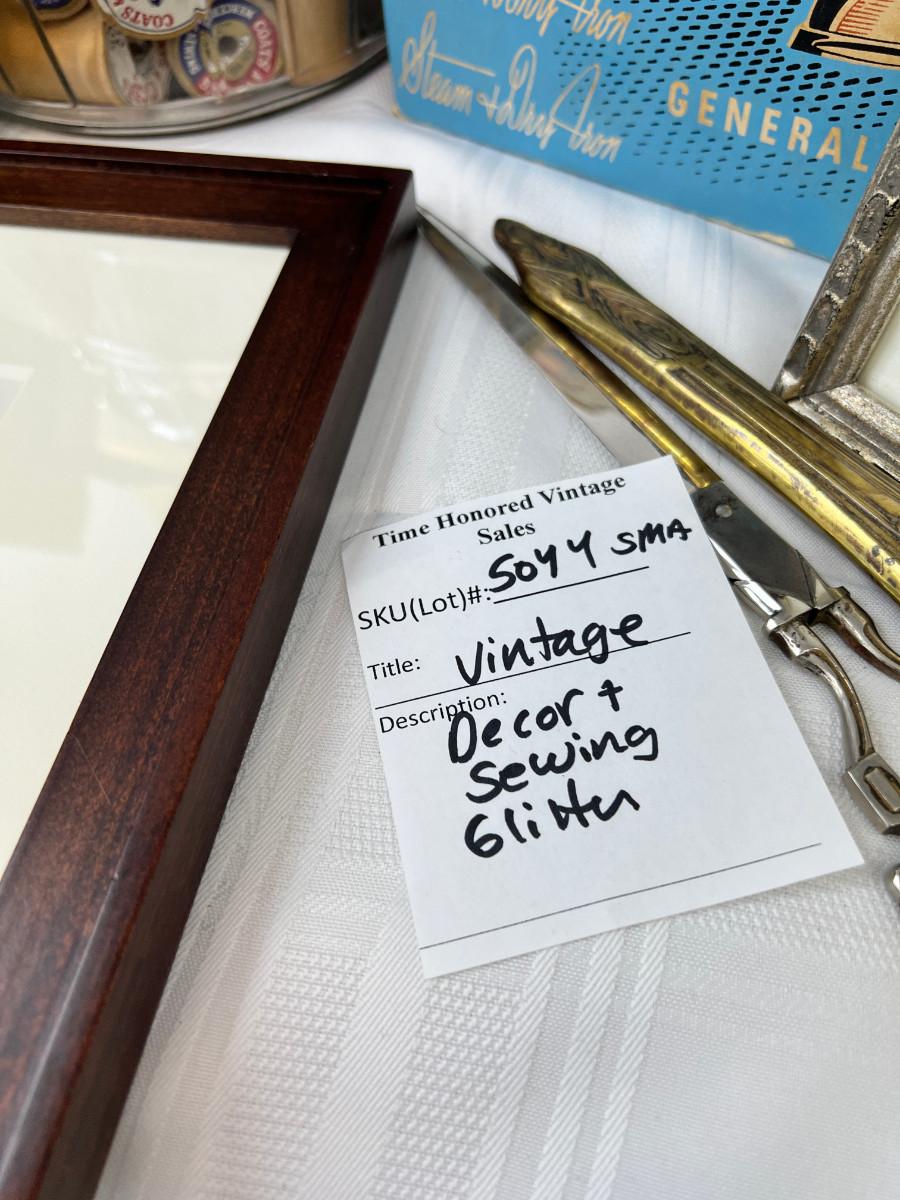 COATS &
Dry Iron
Steam & Dry Iron
GENERAL
Time Honored Vintage
Sales
SKU(Lot)#: 5044 SMA
Title: Vintage
Description:
Decor +
Sewing
Glitter